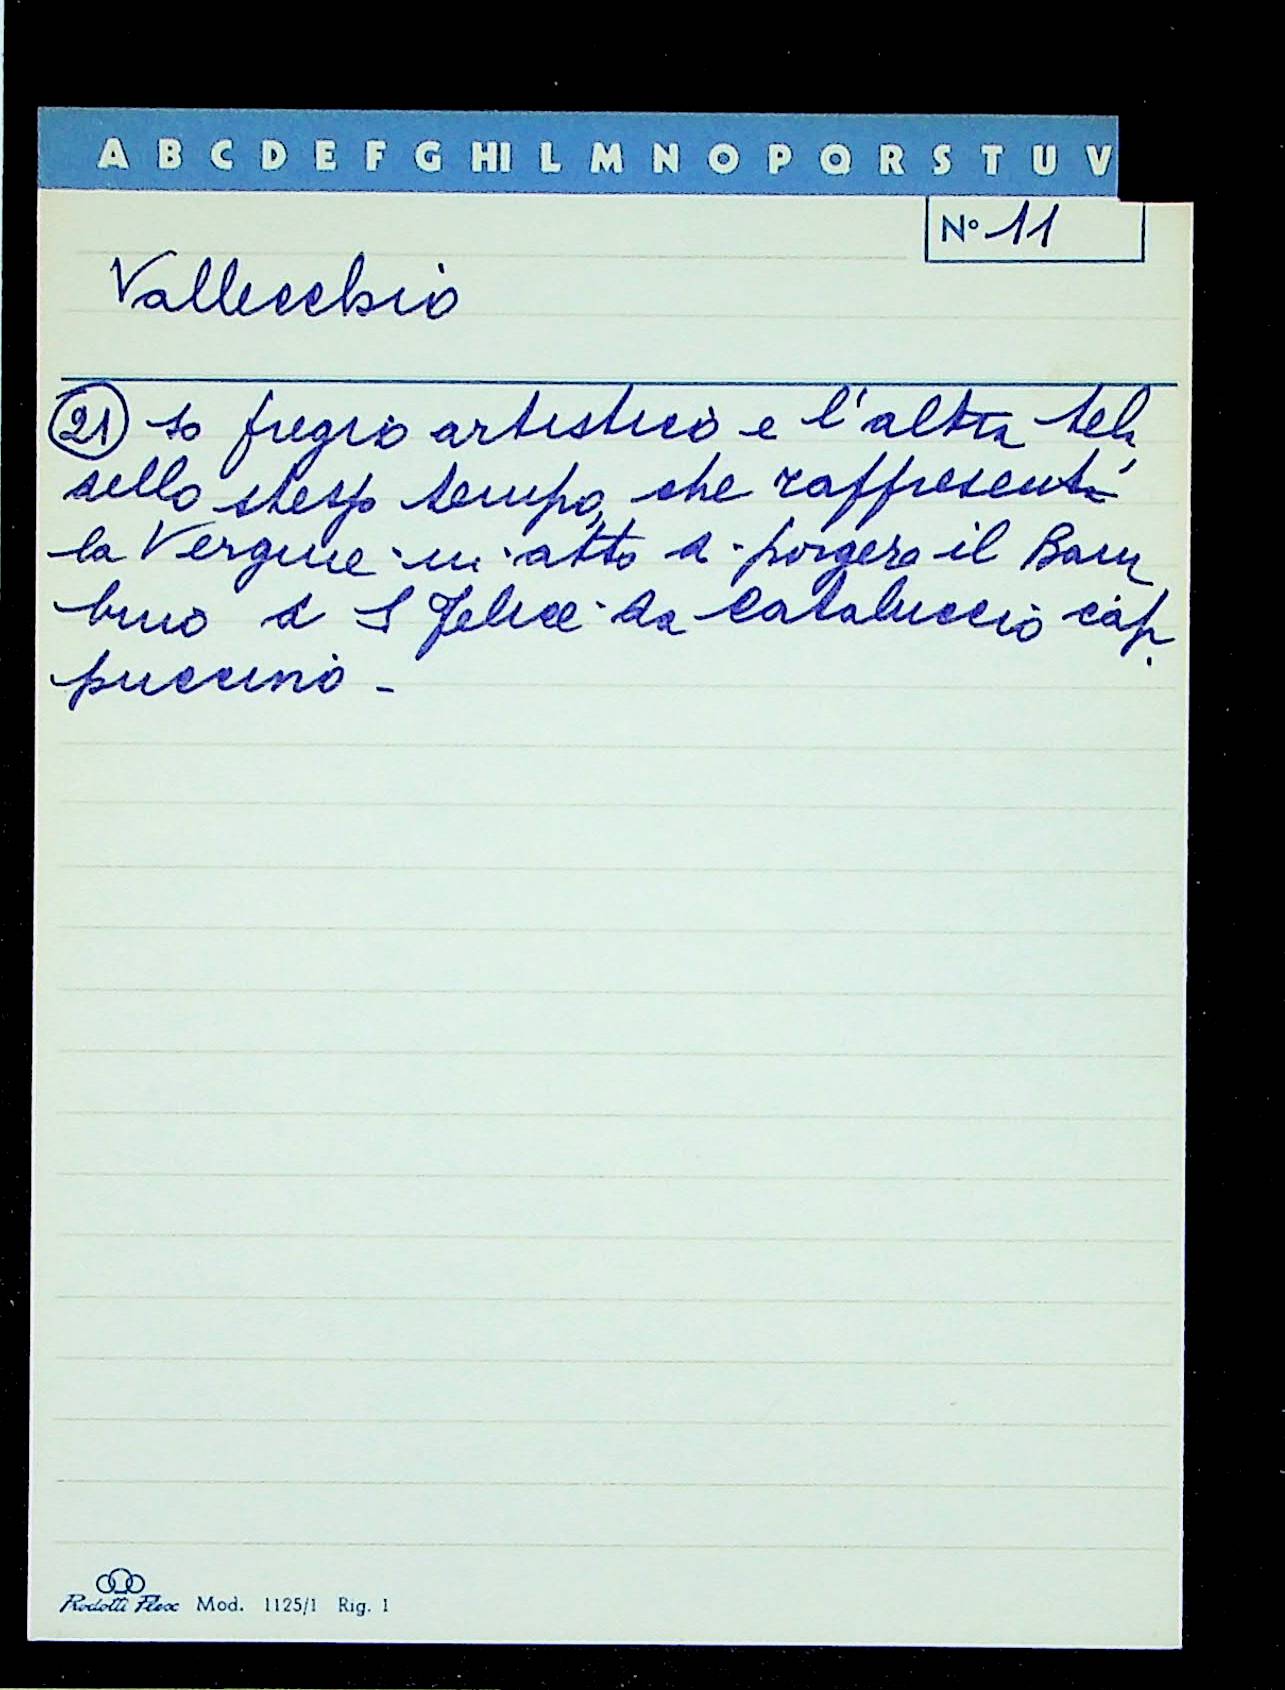 A B C D E F G HI L M N O P Q R S T U V
N° 11
Vallecchio
21 to fregio artistico e l'altra tela
dello stesso tempo, che rappresenta
la Vergine in atto di porgere il Bam
bino a S Felice da Cataluccio cap
puccino -
Prodotti Flex Mod. 1125/1 Rig. 1